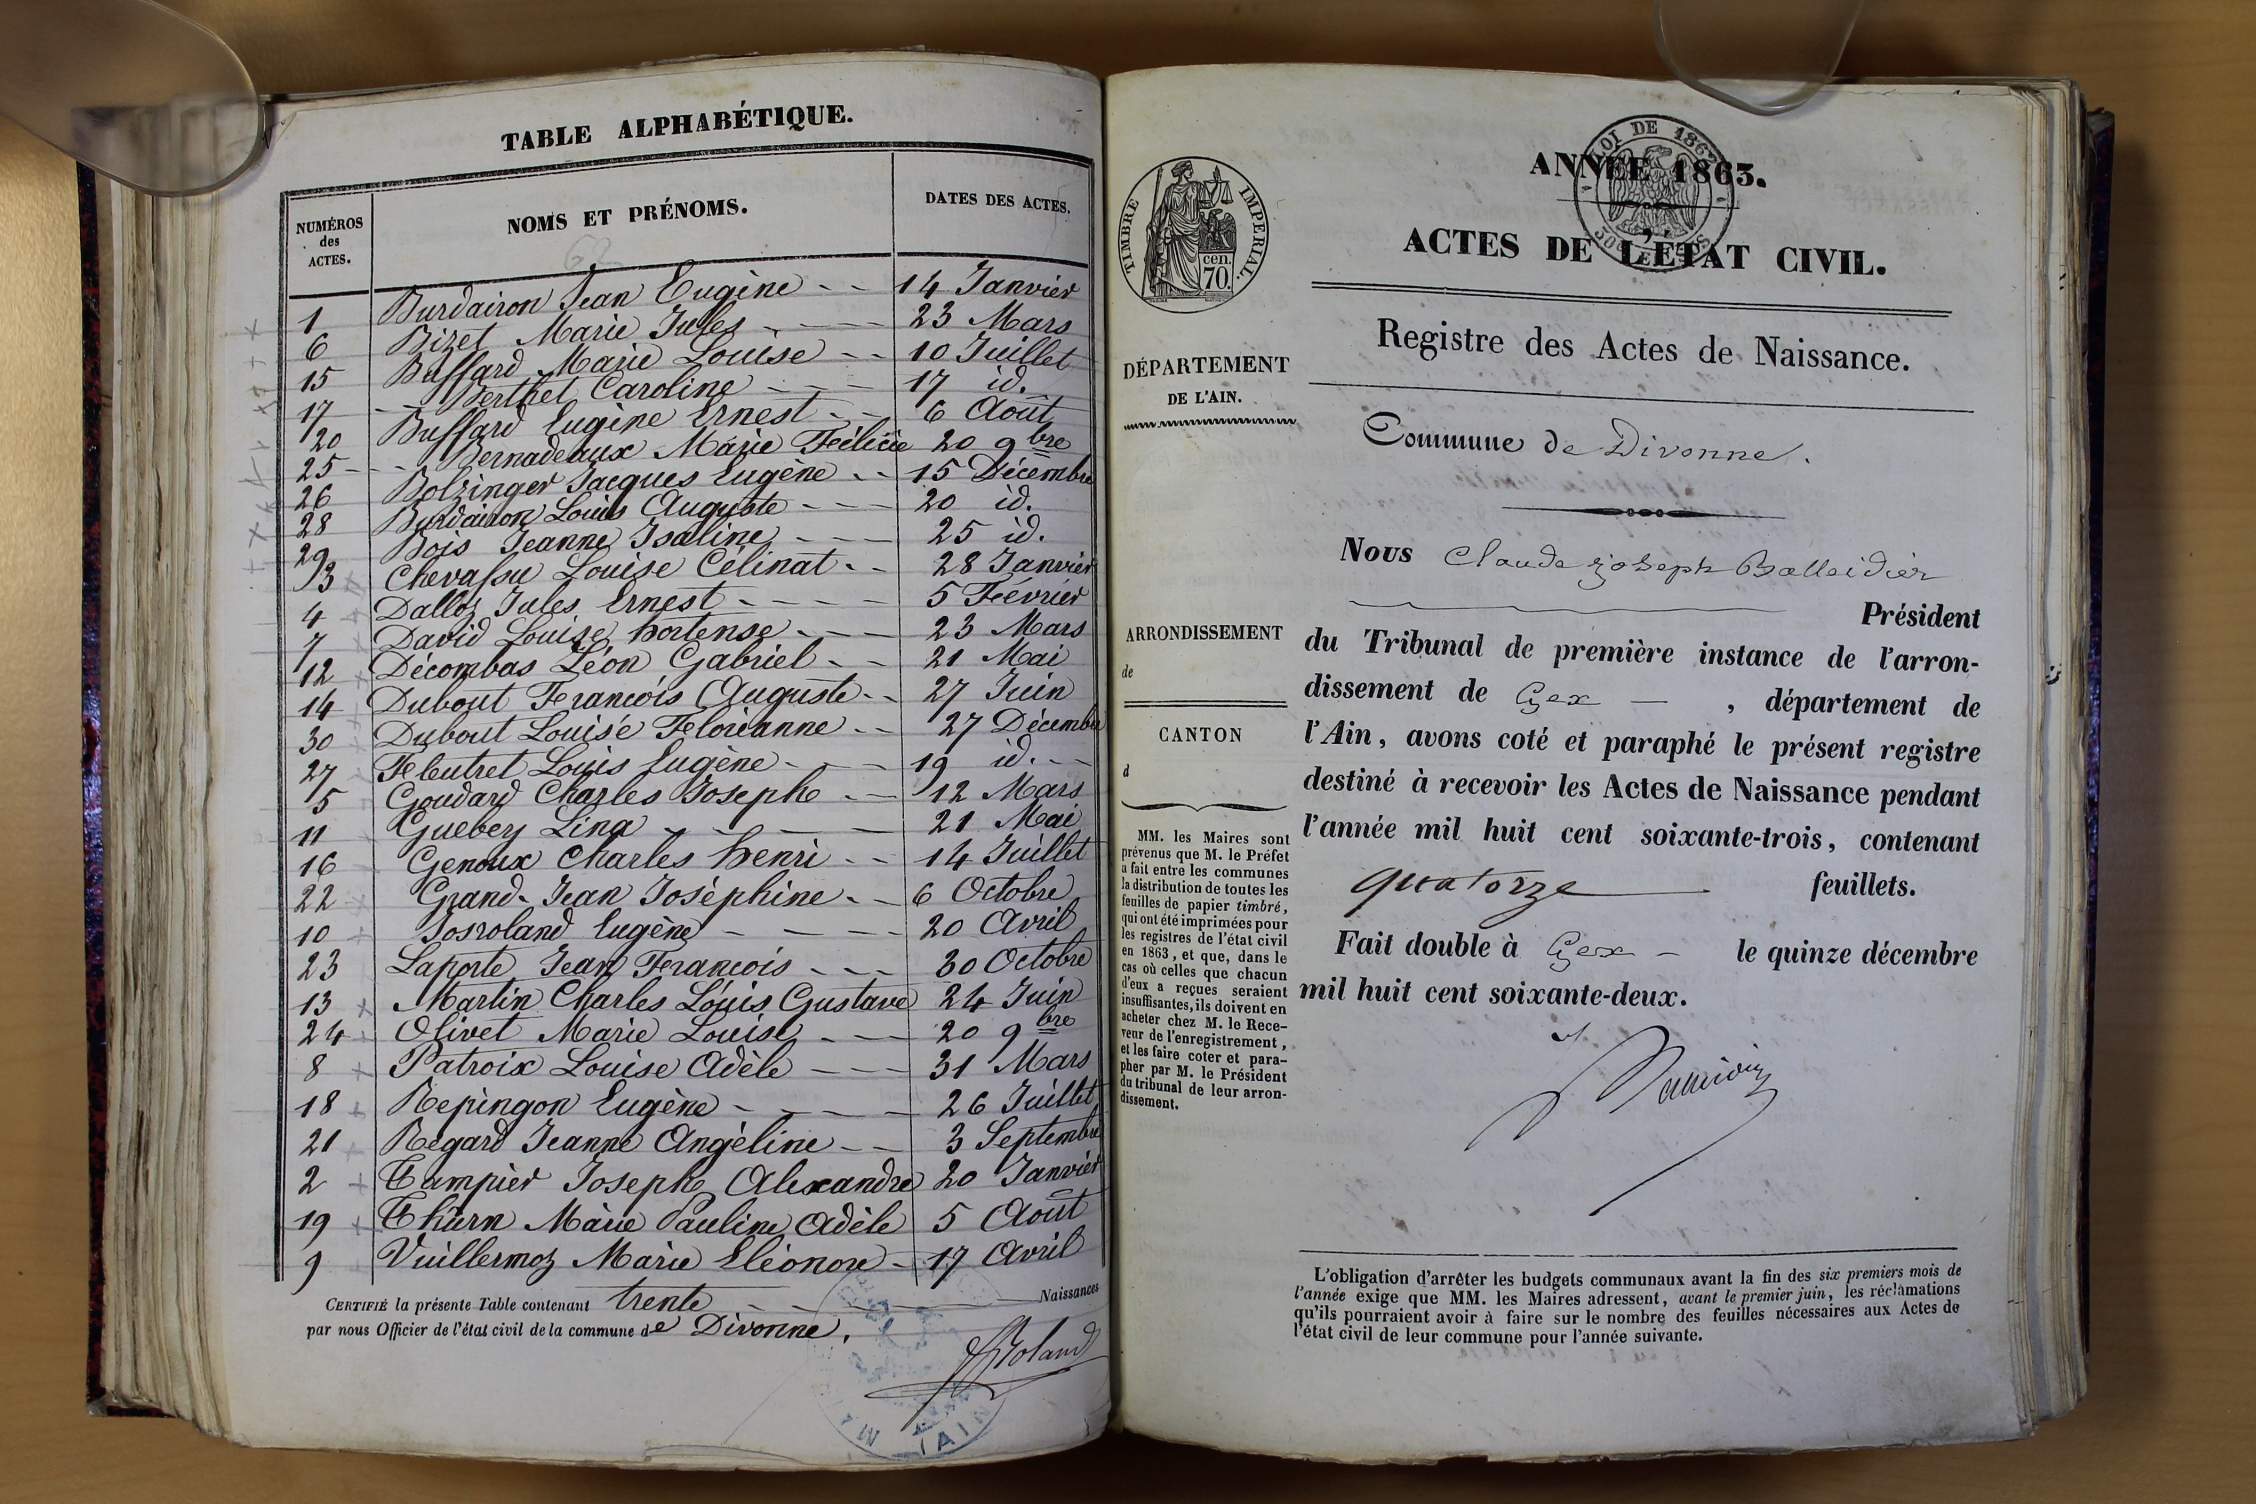 TABLE ALPHABÉTIQUE.
NUMÉROS des ACTES.
NOMS ET PRÉNOMS.
DATES DES ACTES.
62
1 Burdairon Jean Eugène -- 14 Janvier
6 Bizet Marie Jules ---- 23 Mars
15 Buffard Marie Louise -- 10 Juillet
17 -- Berthet Caroline --- 17 id.
20 Buffard Eugène Ernest -- 6 Août
25 -- Bernadeaux Marie Félicie 20 9bre
26 Bolzinger Jacques Eugène -- 15 Décembre
28 Burdairon Louis Auguste --- 20 id.
29 Bois Jeanne Isaline --- 25 id.
3 Chevassu Louise Célinat -- 28 Janvier
4 Dalloz Jules Ernest ---- 5 Février
7 David Louise hortense --- 23 Mars
12 Décombas Léon Gabriel -- 21 Mai
14 Dubout Francois Auguste -- 27 Juin
30 Dubout Louise Florianne -- 27 Décembre
27 Fleutret Louis Eugène --- 19 id. --
5 Goudard Charles Joseph -- 12 Mars
11 Guebey Lina ---- 21 Mai
16 Genoux Charles henri -- 14 Juillet
22 Grand-Jean Joséphine -- 6 Octobre
10 Josroland Eugène ---- 20 Avril
23 Laporte Jean Francois --- 30 Octobre
13 Martin Charles Louis Gustave 24 Juin
24 Olivet Marie Louise --- 20 9bre
8 Patroix Louise Adèle --- 31 Mars
18 Repingon Eugène ---- 26 Juillet
21 Regard Jeanne Angéline -- 3 Septembre
2 Tampier Joseph Alexandre 20 Janvier
19 Thurn Marie Pauline Adèle 5 Août
9 Vuillermoz Marie Eléonore - 17 Avril
CERTIFIÉ la présente Table contenant trente Naissances
par nous Officier de l'état civil de la commune de Divonne.
Roland
AIN
TIMBRE IMPERIAL.
cen.
70.
LOI DE 1862
ANNÉE 1863.
ACTES DE L'ÉTAT CIVIL.
Registre des Actes de Naissance.
DÉPARTEMENT
DE L'AIN.
Commune de Divonne.
Nous Claude Joseph Balleidier
Président
ARRONDISSEMENT
de
du Tribunal de première instance de l'arron-
dissement de Gex — , département de
l'Ain, avons coté et paraphé le présent registre
destiné à recevoir les Actes de Naissance pendant
l'année mil huit cent soixante-trois, contenant
quatorze feuillets.
Fait double à Gex - le quinze décembre
mil huit cent soixante-deux.
CANTON
d
MM. les Maires sont
prévenus que M. le Préfet
a fait entre les communes
la distribution de toutes les
feuilles de papier timbré,
qui ont été imprimées pour
les registres de l'état civil
en 1863, et que, dans le
cas où celles que chacun
d'eux a reçues seraient
insuffisantes, ils doivent en
acheter chez M. le Rece-
veur de l'enregistrement,
et les faire coter et para-
pher par M. le Président
du tribunal de leur arron-
dissement.
L'obligation d'arrêter les budgets communaux avant la fin des six premiers mois de
l'année exige que MM. les Maires adressent, avant le premier juin, les réclamations
qu'ils pourraient avoir à faire sur le nombre des feuilles nécessaires aux Actes de
l'état civil de leur commune pour l'année suivante.